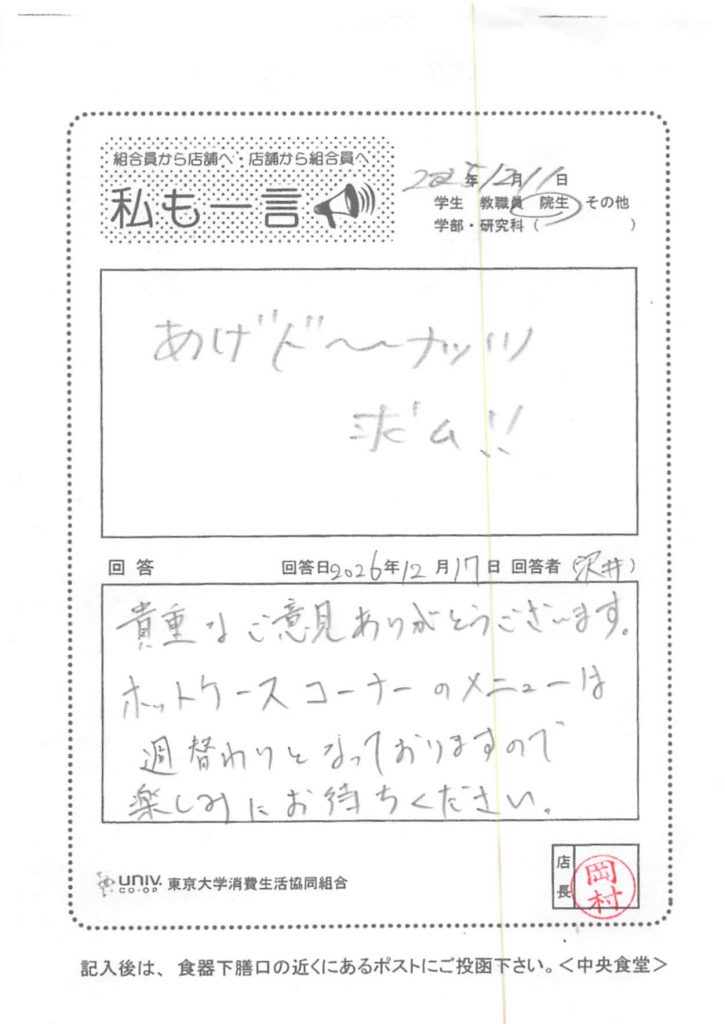 組合員から店舗へ・店舗から組合員へ
私も一言
2025年12月11日
学生 教職員 院生 その他
学部・研究科（ ）
あげド〜〜ナッツ
求ム!!
回答 回答日2026年12月17日 回答者（沢井）
貴重なご意見ありがとうございます。
ホットケースコーナーのメニューは
週替わりとなっておりますので
楽しみにお待ちください。
UNIV. CO-OP 東京大学消費生活協同組合
店長 岡村
記入後は、食器下膳口の近くにあるポストにご投函下さい。＜中央食堂＞